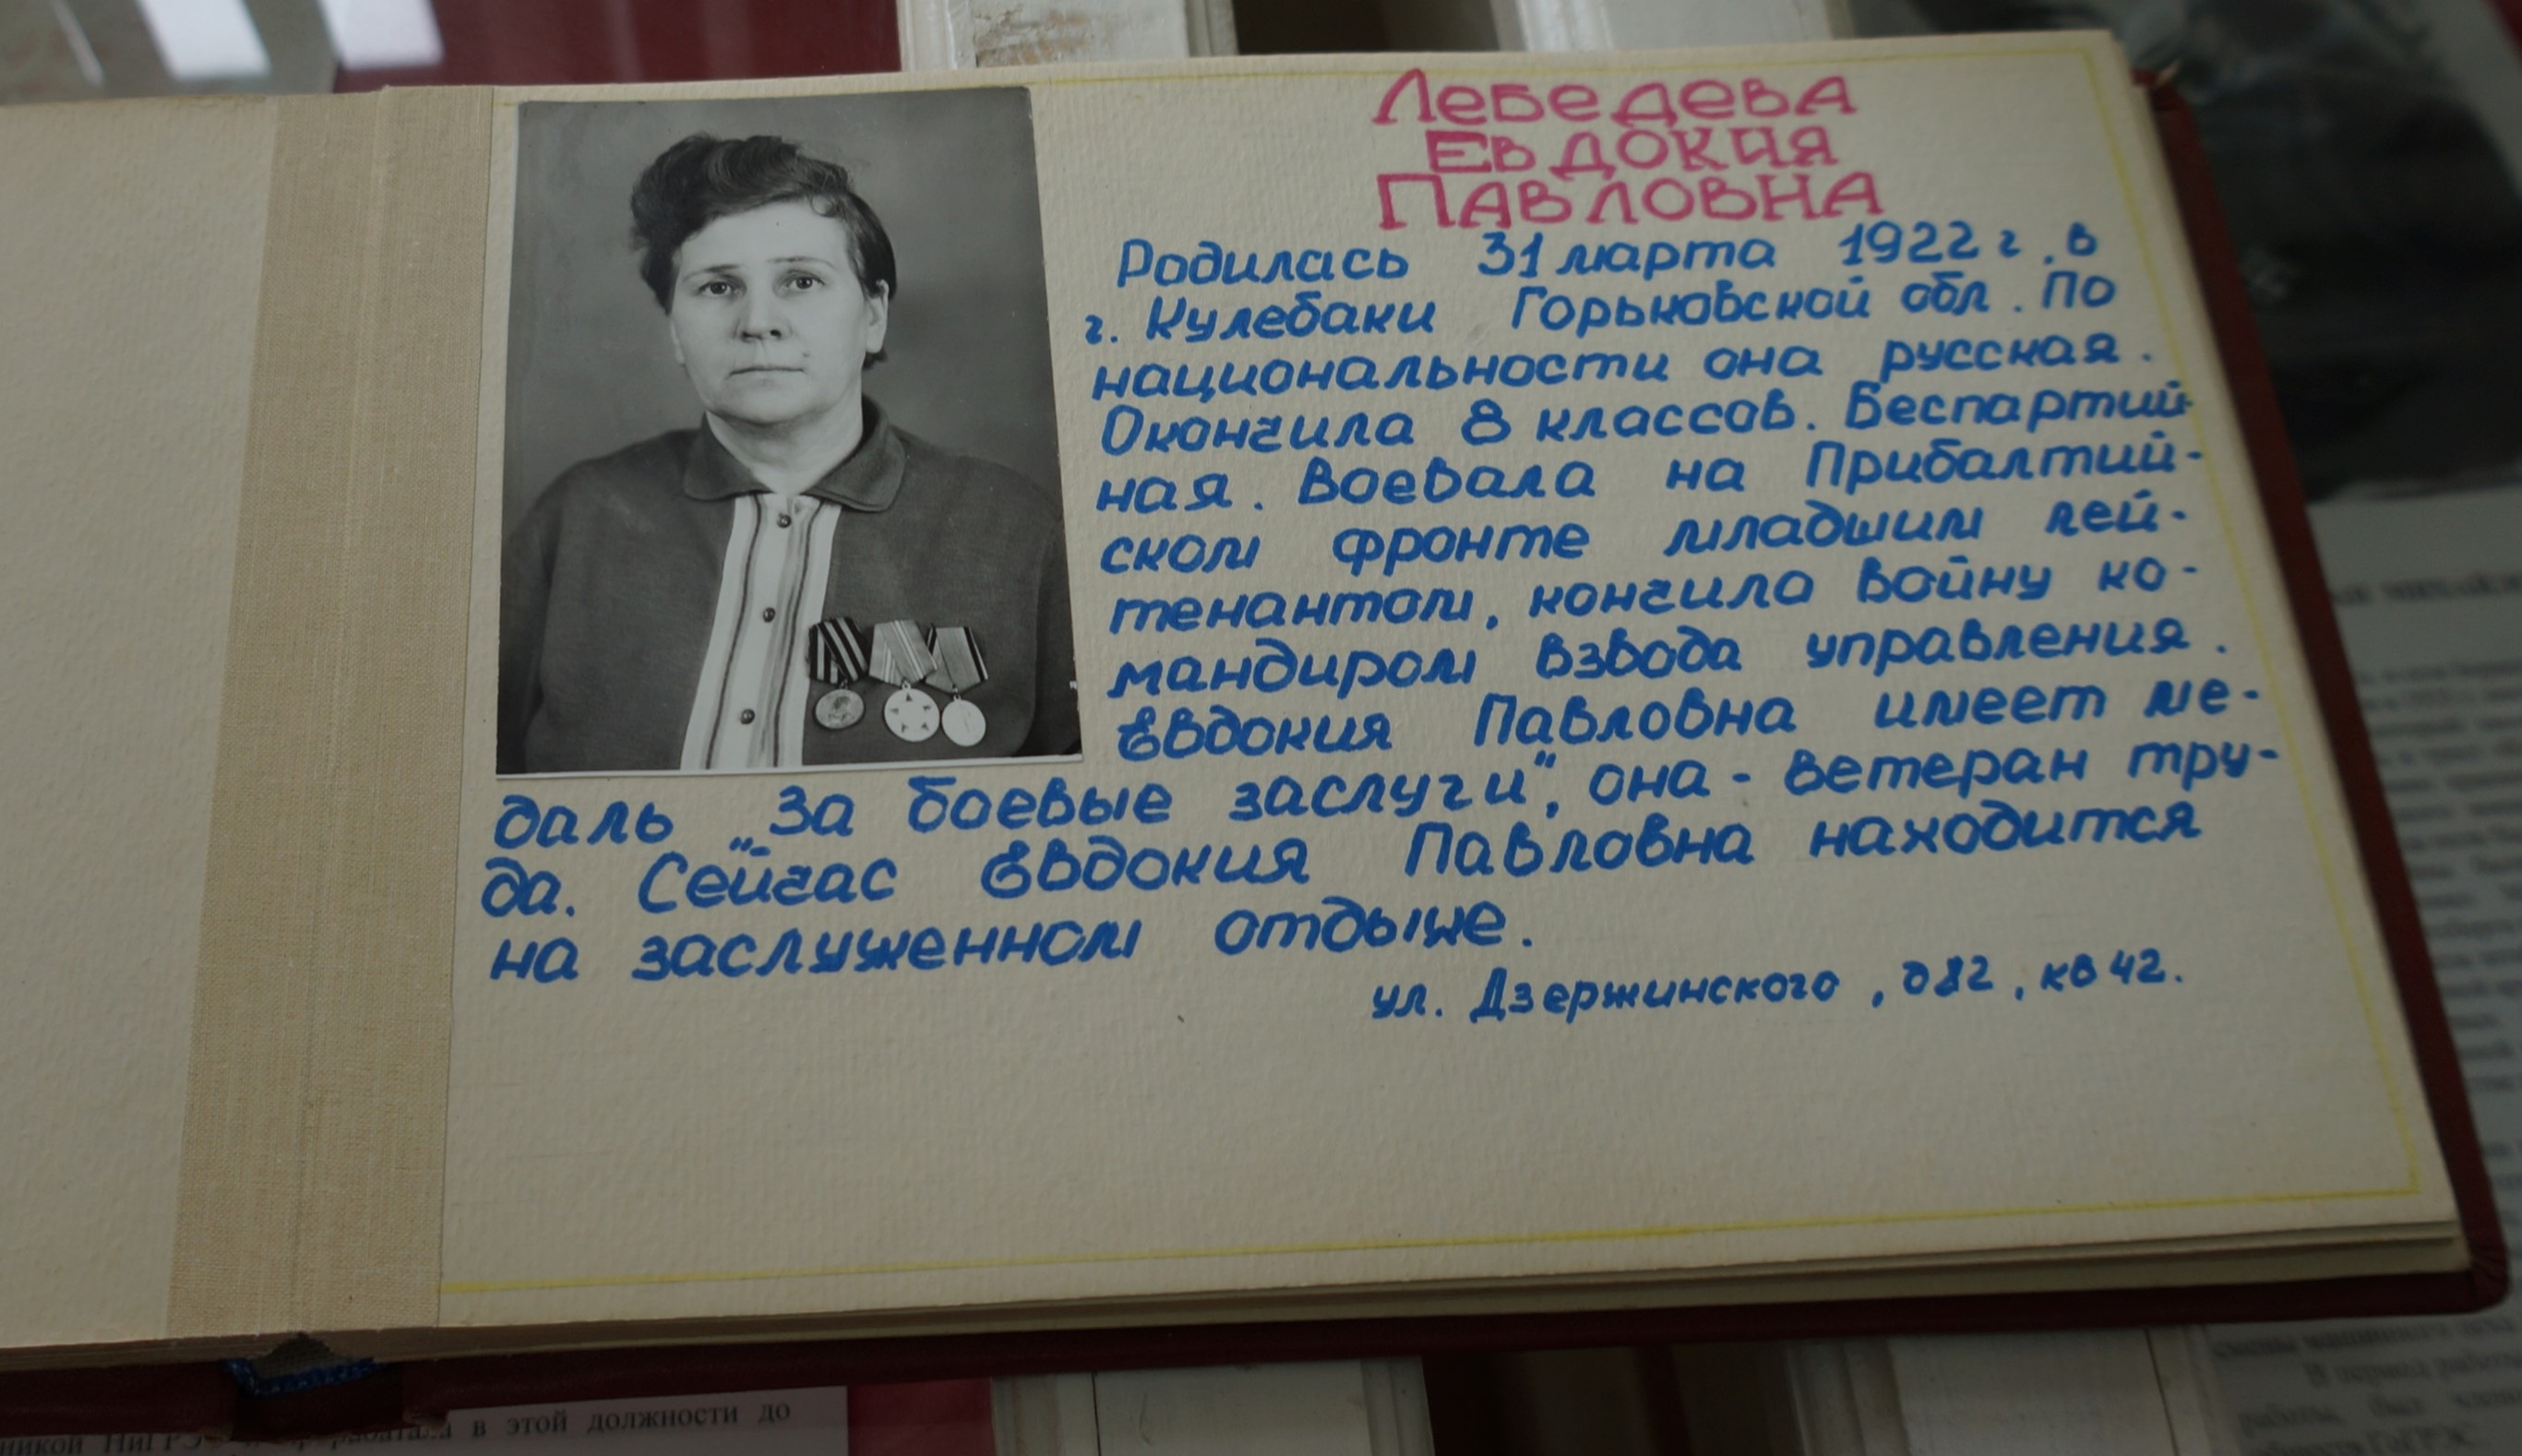 Лебедева
Евдокия
Павловна
Родилась 31 марта 1922 г, в
г. Кулебаки Горьковской обл. По
национальности она русская.
Окончила 8 классов. Беспартий-
ная. Воевала на Прибалтий-
ском фронте младшим лей-
тенантом, кончила войну ко-
мандиром взвода управления.
Евдокия Павловна имеет ме-
даль „За боевые заслуги", она - ветеран тру-
да. Сейчас Евдокия Павловна находится
на заслуженном отдыхе.
ул. Дзержинского, д 82, кв 42.
в этой должности до
В период работы